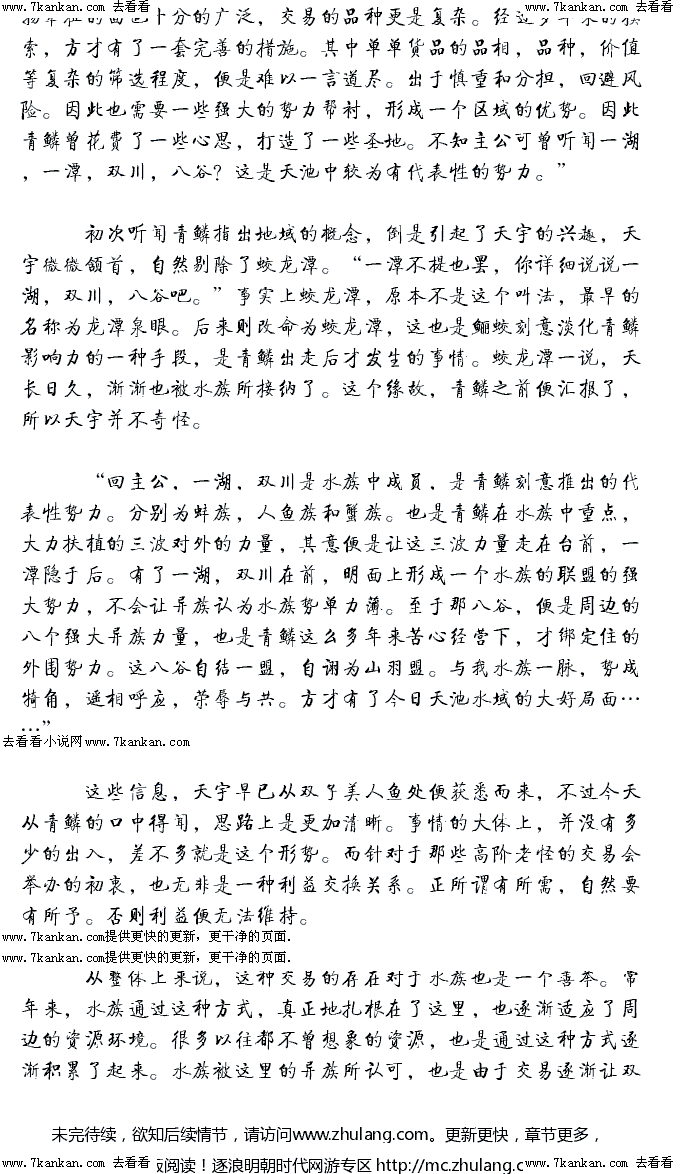 www.7kankan.com 去看看 www.7kankan.com 去看看 www.7kankan.com 去看看
的面色十分的广泛，交易的品种更是复杂。经过多年来的摸
索，方才有了一套完善的措施。其中单单货品的品相，品种，价值
等复杂的筛选程度，便是难以一言道尽。出于慎重和分担，回避风
险。因此也需要一些强大的势力帮衬，形成一个区域的优势。因此
青鳞曾花费了一些心思，打造了一些圣地。不知主公可曾听闻一湖
，一潭，双川，八谷？这是天池中较为有代表性的势力。”
初次听闻青鳞指出地域的概念，倒是引起了天宇的兴趣，天
宇微微颔首，自然剔除了蛟龙潭。“一潭不提也罢，你详细说说一
湖，双川，八谷吧。”事实上蛟龙潭，原本不是这个叫法，最早的
名称为龙潭泉眼。后来则改命为蛟龙潭，这也是鲡蛟刻意淡化青鳞
影响力的一种手段，是青鳞出走后才发生的事情。蛟龙潭一说，天
长日久，渐渐也被水族所接纳了。这个缘故，青鳞之前便汇报了，
所以天宇并不奇怪。
“回主公，一湖，双川是水族中成员，是青鳞刻意推出的代
表性势力。分别为蚌族，人鱼族和蟹族。也是青鳞在水族中重点，
大力扶植的三波对外的力量，其意便是让这三波力量走在台前，一
潭隐于后。有了一湖，双川在前，明面上形成一个水族的联盟的强
大势力，不会让异族认为水族势单力薄。至于那八谷，便是周边的
八个强大异族力量，也是青鳞这么多年来苦心经营下，才绑定住的
外围势力。这八谷自结一盟，自诩为山羽盟。与我水族一脉，势成
犄角，遥相呼应，荣辱与共。方才有了今日天池水域的大好局面…
…”
去看看小说网www.7kankan.com
这些信息，天宇早已从双子美人鱼处便获悉而来，不过今天
从青鳞的口中得闻，思路上是更加清晰。事情的大体上，并没有多
少的出入，差不多就是这个形势。而针对于那些高阶老怪的交易会
举办的初衷，也无非是一种利益交换关系。正所谓有所需，自然要
有所予。否则利益便无法维持。
www.7kankan.com提供更快的更新，更干净的页面.
www.7kankan.com提供更快的更新，更干净的页面.
从整体上来说，这种交易的存在对于水族也是一个喜举。常
年来，水族通过这种方式，真正地扎根在了这里，也逐渐适应了周
边的资源环境。很多以往都不曾想象的资源，也是通过这种方式逐
渐积累了起来。水族被这里的异族所认可，也是由于交易逐渐让双
未完待续，欲知后续情节，请访问www.zhulang.com。更新更快，章节更多，
www.7kankan.com 去看看 阅读！逐浪明朝时代网游专区 http://mc.zhulang.com www.7kankan.com 去看看